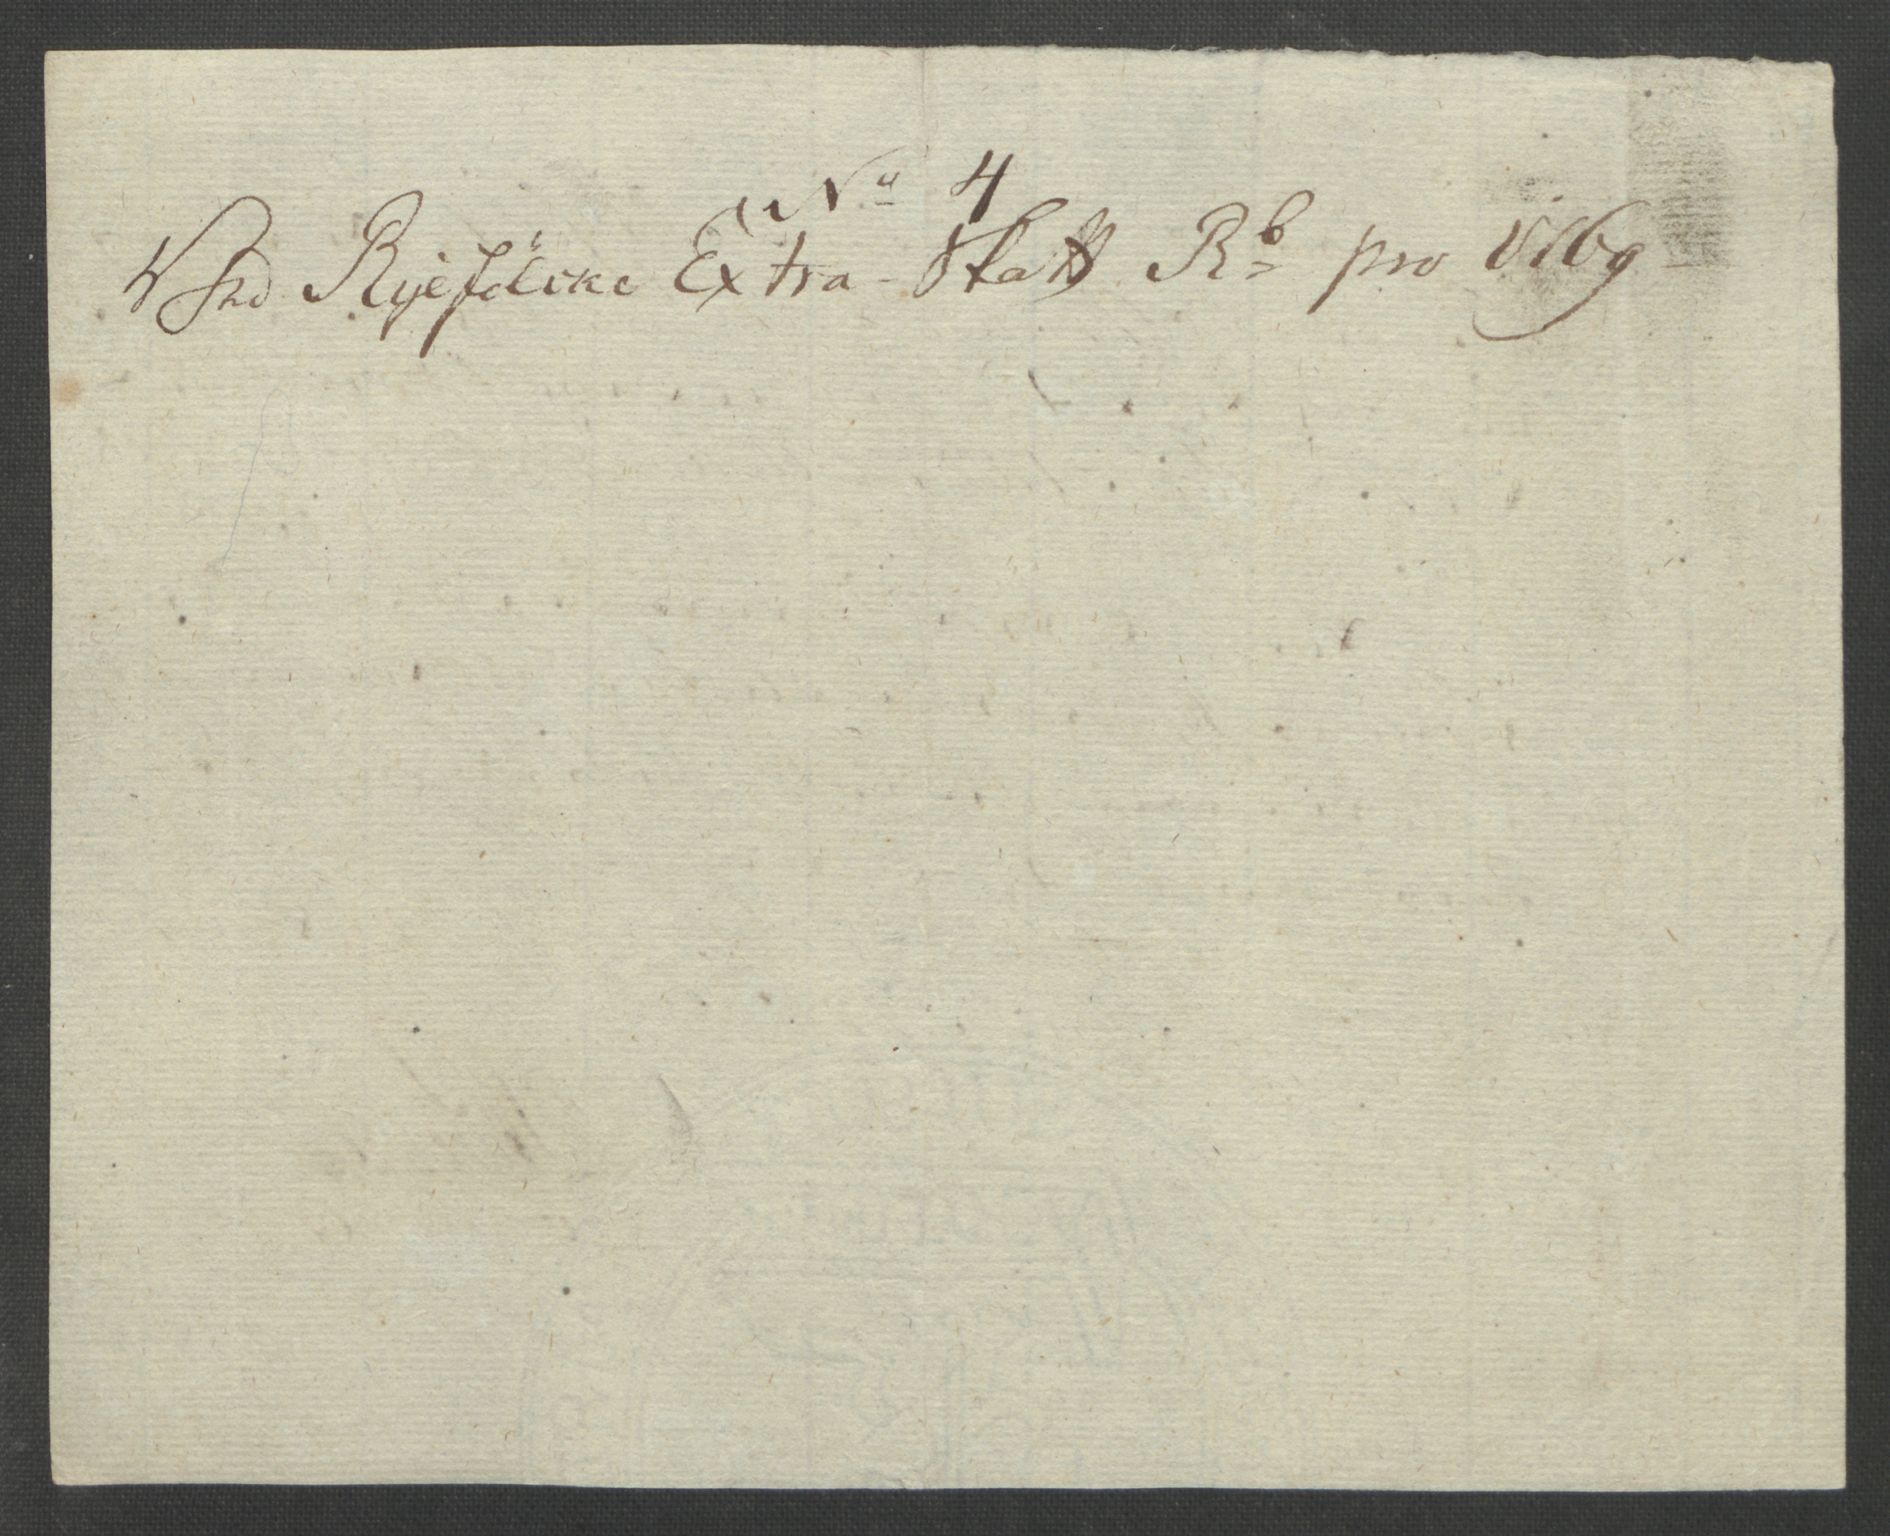 No 4
Ved Ryefylcke Extra-Skatt Rb pro 1769